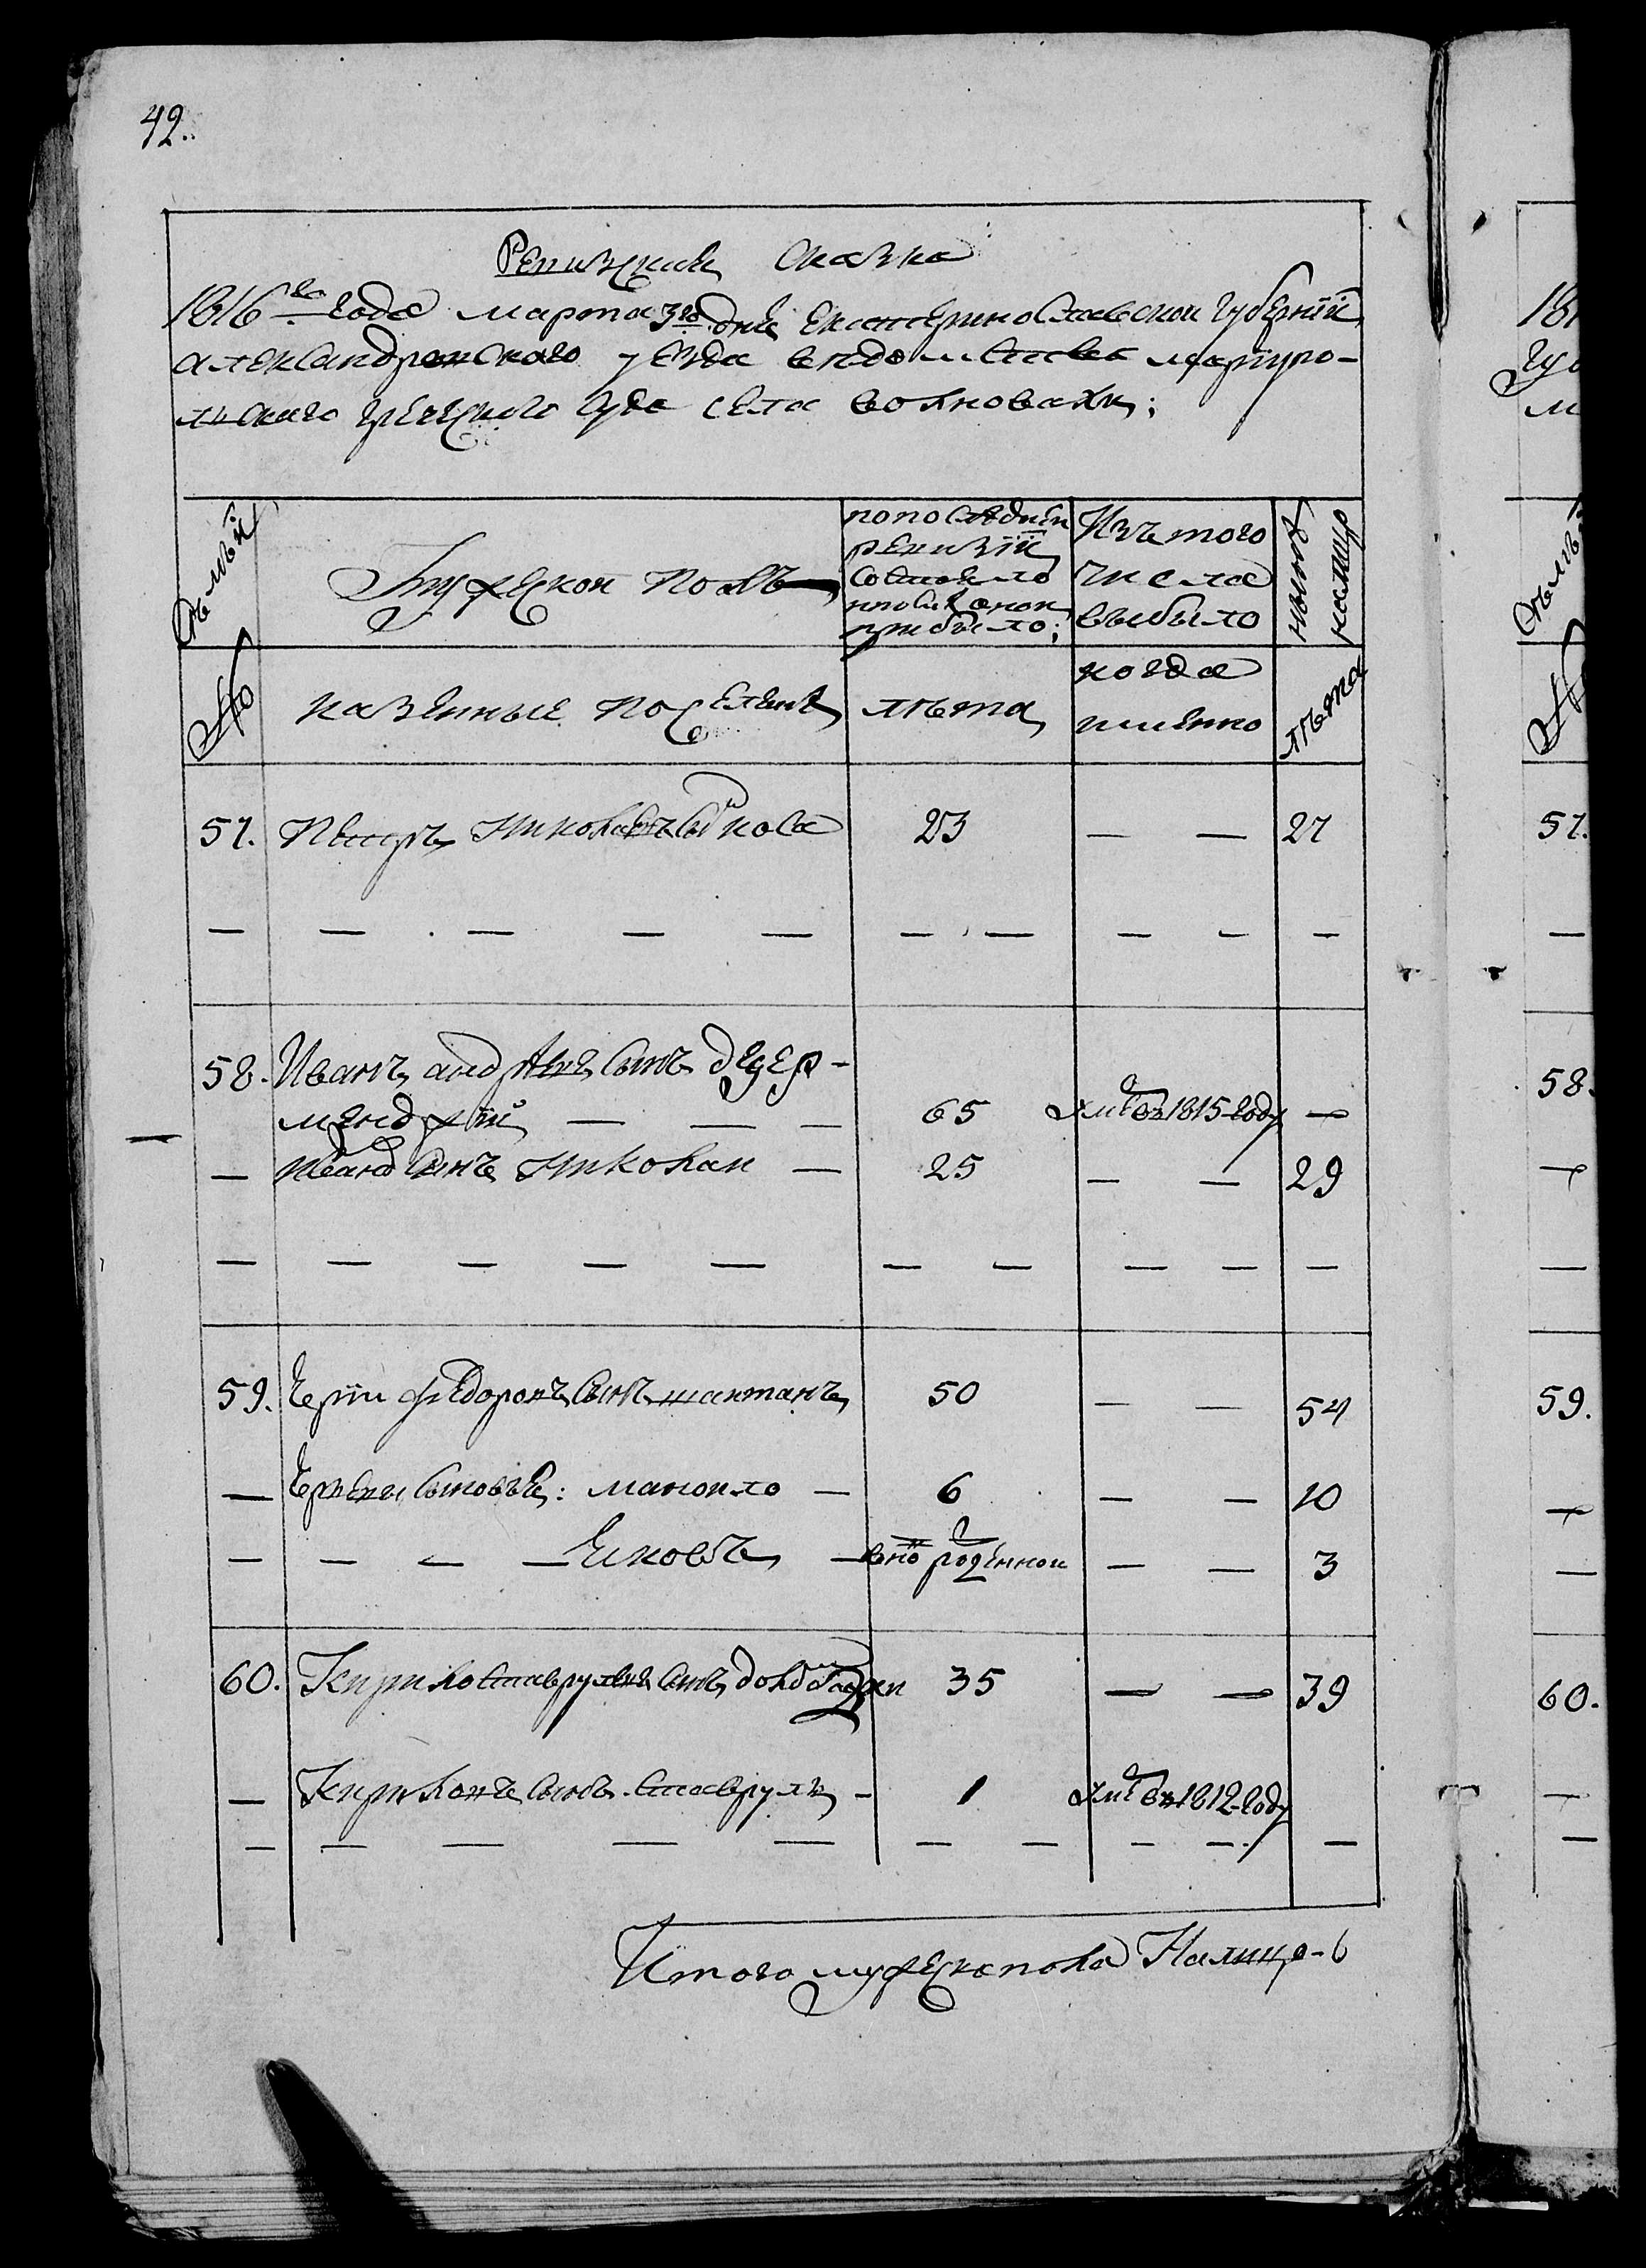 42.
Ревизская Сказка
1816го года марта 3го дня Екатеринославской Губернии
александровского уезда ведомства мариупо-
льского греческого суда села волновахи;
семьи
Мужеской полъ
по последней
ревизии
состояло
и после оной
прибыло;
Изъ того
числа
выбыло
ныне
налицо
№
казенные поселяне
лѣта
когда
имянно
лѣта
57. Петръ Николаевъ сынъ 23 — — 27
— — — — — — — — — —
58. Иванъ андреевъ Сынъ деger-
менджий — — — 65 умре въ 1815 году —
— Ивановъ Сынъ Николай — 25 — — 29
— — — — — — — — — —
59. Юрий федоровъ Сынъ шаптанъ 50 — — 54
— Юрьевы Сыновья: манойло — 6 — — 10
— — — — Яковъ — вновь рожденной — — 3
60. Кирило Ставруловъ Сынъ 35 — — 39
— Кириловъ Сынъ Ставруль — 1 умре въ 1812 году
— — — — — — — — — —
Итого мужеска пола Налицо - 6
181
57.
58.
59.
60.